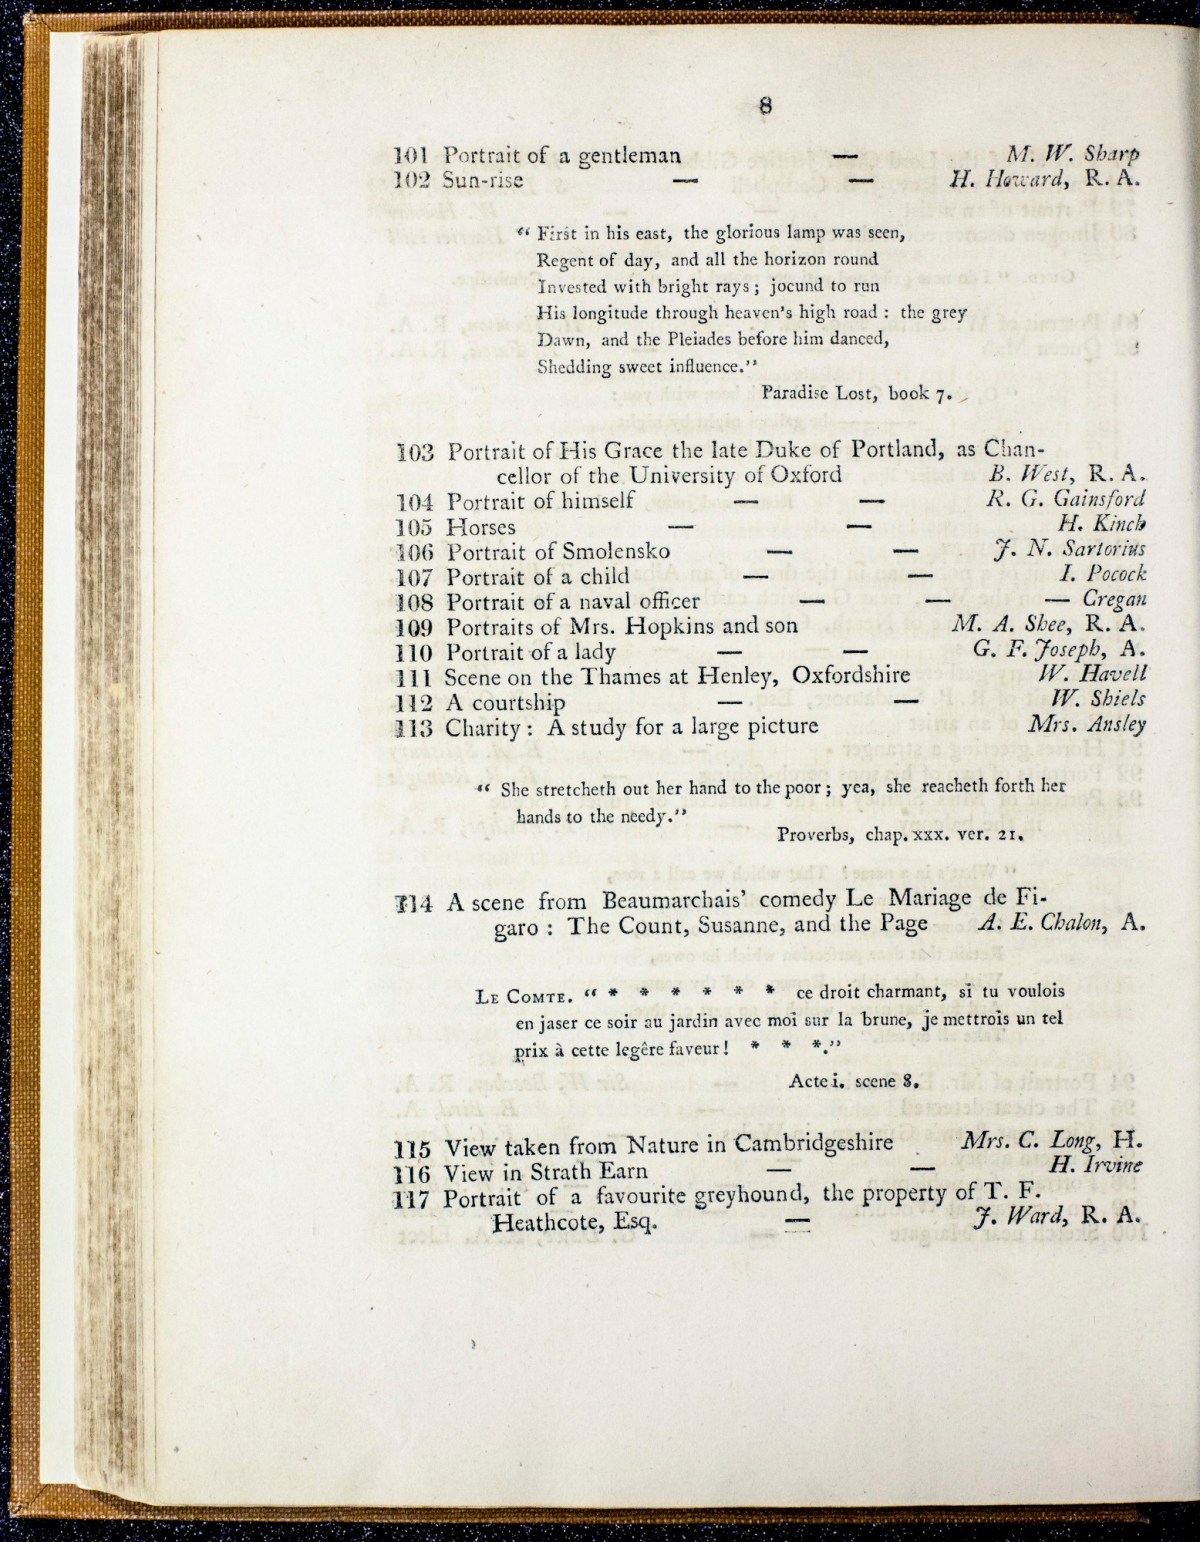 8
101 Portrait of a gentleman — M. W. Sharp
102 Sun-rise — — H. Howard, R. A.
“ First in his east, the glorious lamp was seen,
Regent of day, and all the horizon round
Invested with bright rays ; jocund to run
His longitude through heaven's high road : the grey
Dawn, and the Pleiades before him danced,
Shedding sweet influence.”
Paradise Lost, book 7.
103 Portrait of His Grace the late Duke of Portland, as Chan-
cellor of the University of Oxford B. West, R. A.
104 Portrait of himself — — R. G. Gainsford
105 Horses — — H. Kinch
106 Portrait of Smolensko — — J. N. Sartorius
107 Portrait of a child — — I. Pocock
108 Portrait of a naval officer — — — Cregan
109 Portraits of Mrs. Hopkins and son M. A. Shee, R. A.
110 Portrait of a lady — — G. F. Joseph, A.
111 Scene on the Thames at Henley, Oxfordshire W. Havell
112 A courtship — — W. Shiels
113 Charity : A study for a large picture Mrs. Ansley
“ She stretcheth out her hand to the poor ; yea, she reacheth forth her
hands to the needy.”
Proverbs, chap. xxx. ver. 21.
114 A scene from Beaumarchais' comedy Le Mariage de Fi-
garo : The Count, Susanne, and the Page A. E. Chalon, A.
LE COMTE. “ * * * * * * ce droit charmant, si tu voulois
en jaser ce soir au jardin avec moi sur la brune, je mettrois un tel
prix à cette legêre faveur ! * * *.”
Acte i. scene 8.
115 View taken from Nature in Cambridgeshire Mrs. C. Long, H.
116 View in Strath Earn — — H. Irvine
117 Portrait of a favourite greyhound, the property of T. F.
Heathcote, Esq. — J. Ward, R. A.